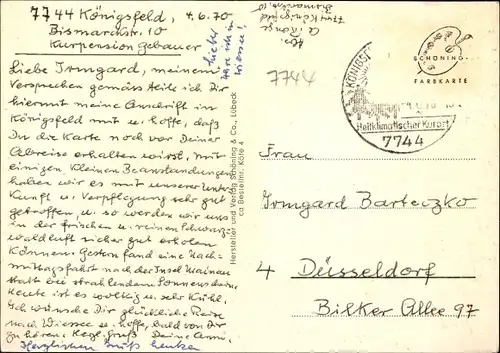 7744 Königsfeld, 4.6.70
Bismarckstr. 10
Kurpension Gebauer
Liebe Irmgard, meinem
Versprechen gemäss teile ich Dir
hiermit meine Anschrift in
Königsfeld mit u. hoffe, daß
Du die Karte noch vor Deiner
Abreise erhalten wirst. Mit
einigen kleinen Beanstandungen
haben wir es mit unserer Unter-
kunft u. Verpflegung sehr gut
getroffen, u. so werden wir uns
in der frischen u. reinen Schwarz-
waldluft sicher gut erholen
können. Gestern fand eine Nach-
mittagsfahrt nach der Insel Mainau
statt bei strahlendem Sonnenschein.
Heute ist es wolkig u. sehr kühl.
Ich wünsche Dir glückliche Reise
nach Wiessee u. hoffe, bald von Dir
zu hören. Herzl. Gruß Deine
Herzlichen Gruß
Hersteller und Verlag Schöning & Co., Lübeck
ca Bestellnr. Köfe 4
7744 Königsfeld
Bismarckstr. 10
7744
SCHÖNING
FARBKARTE
KÖNIGSF
Heilklimatischer Kurort
7744
Frau
Irmgard Barteczko
4 Düsseldorf
Bilker Allee 97